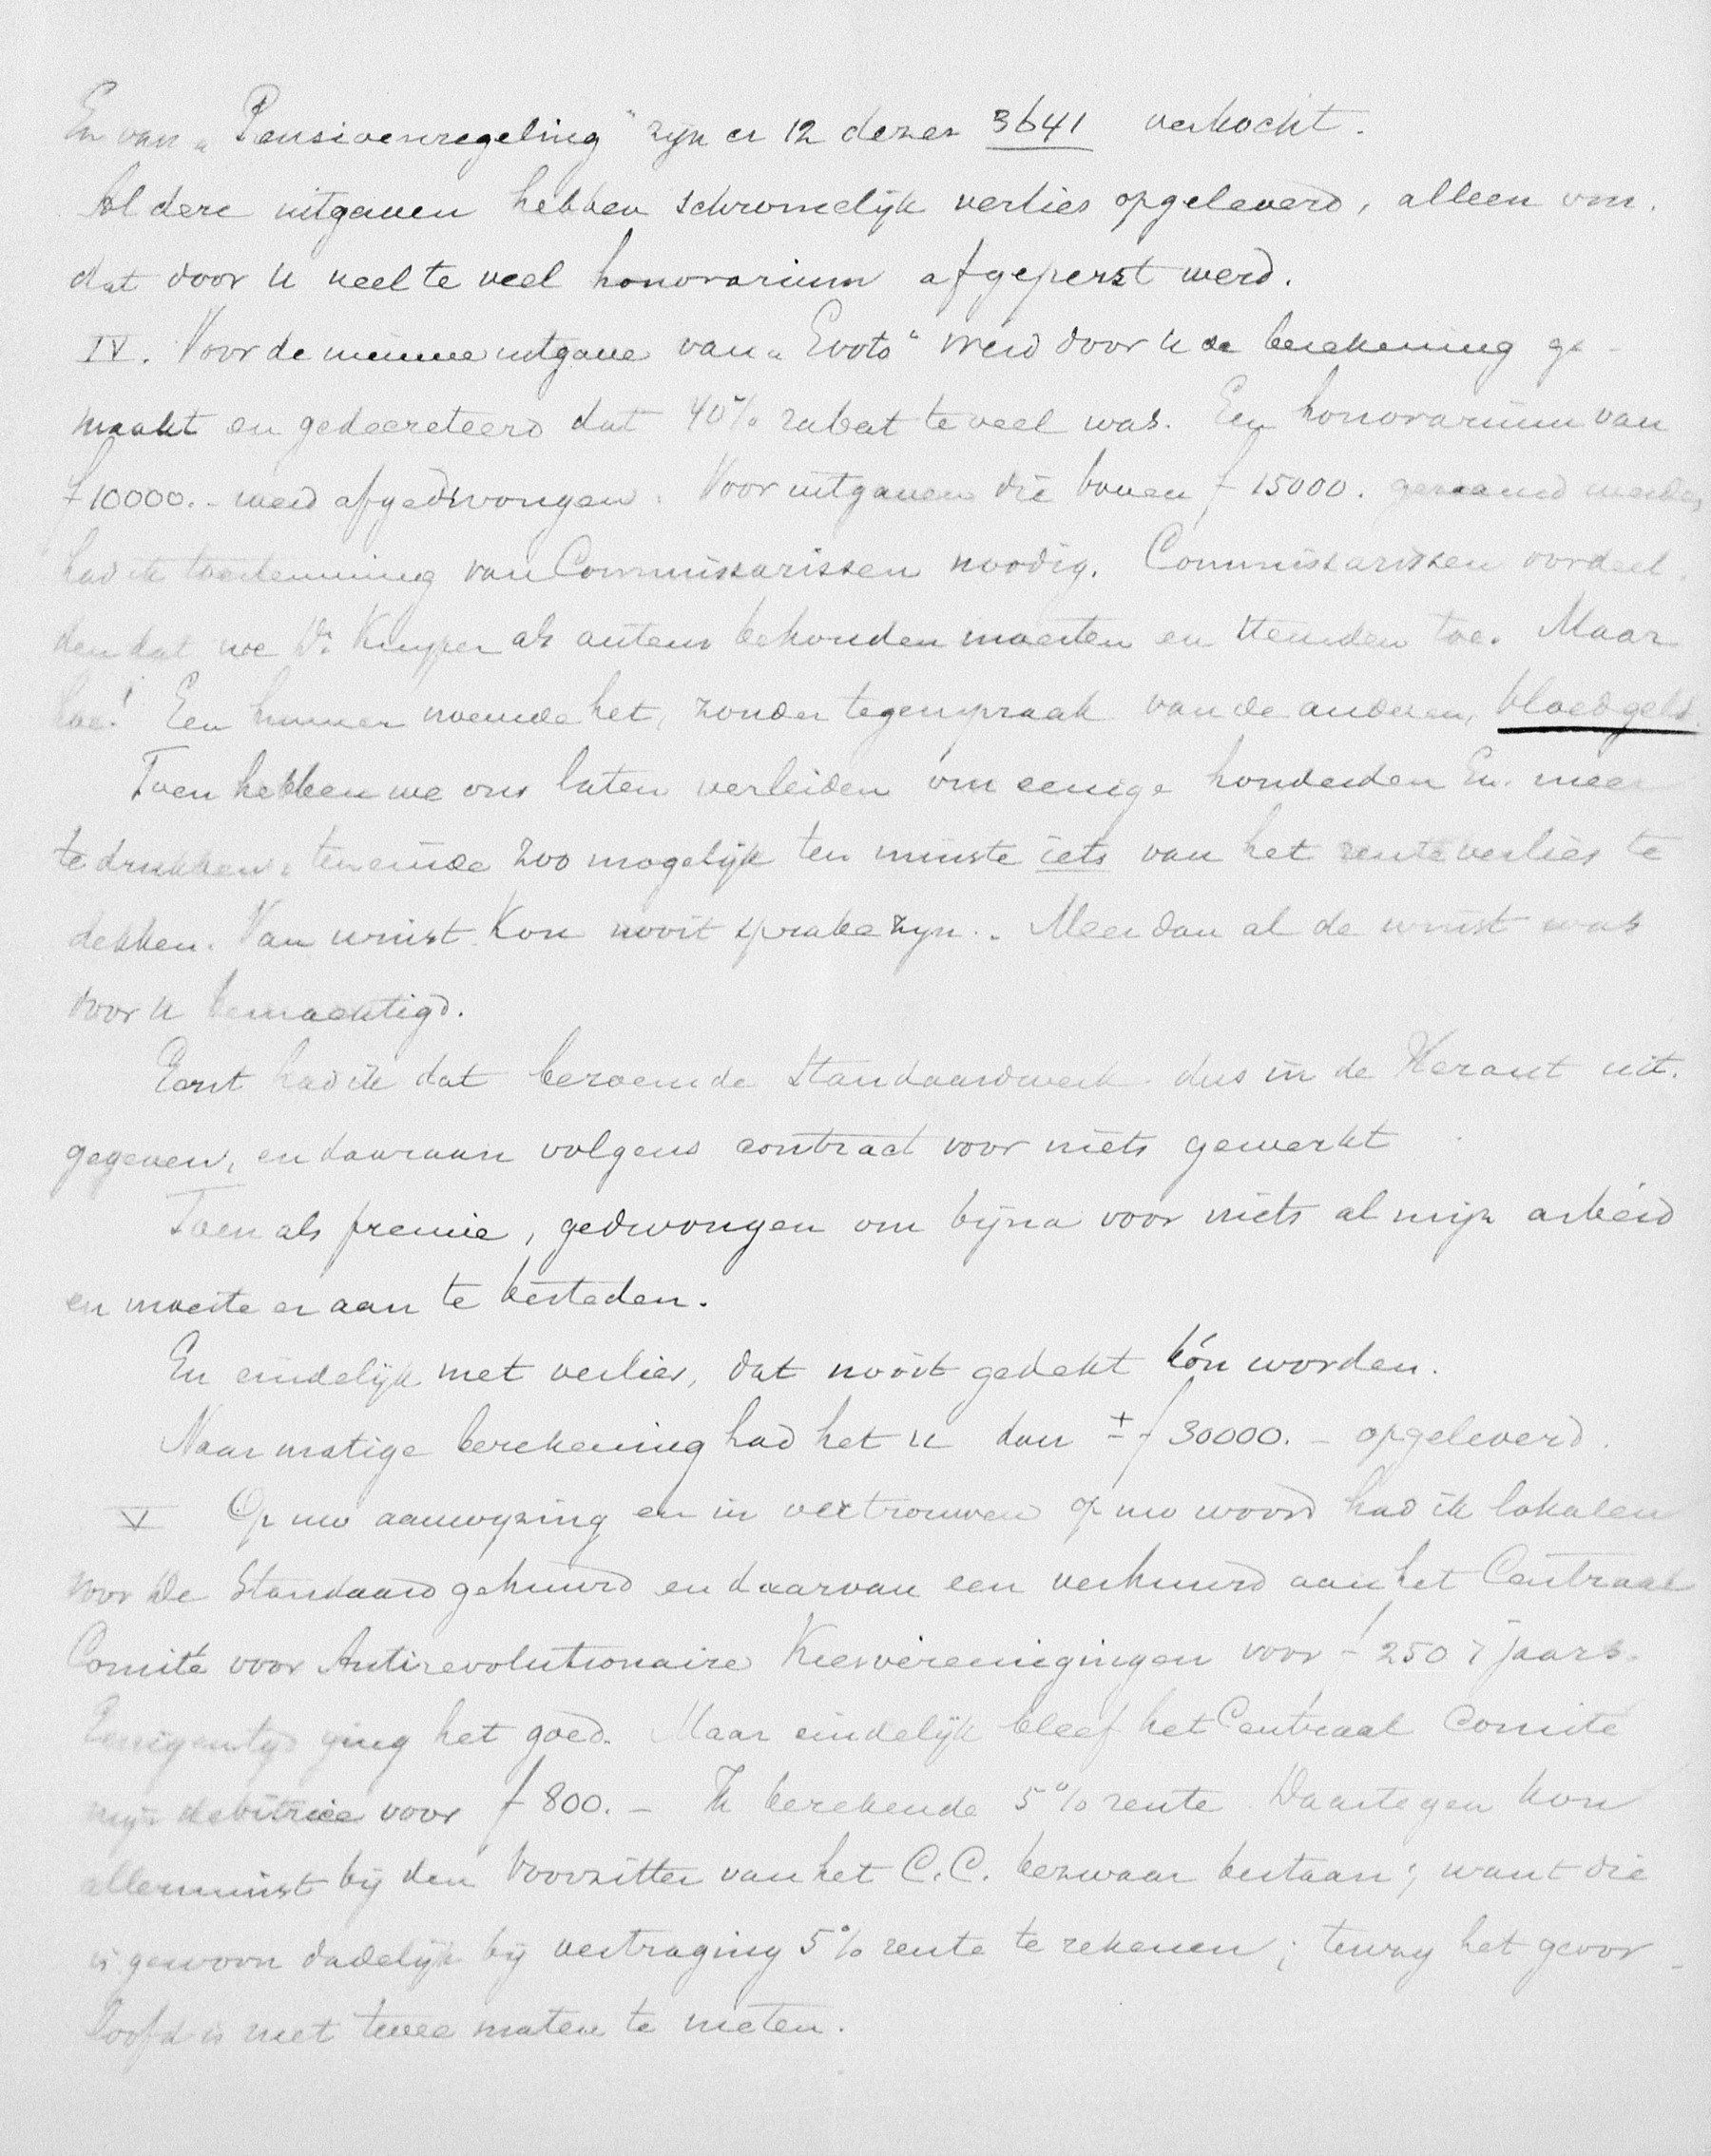 En van „Pensioenregeling" zijn er 12 dezer 3641 verkocht.
Al deze uitgaven hebben schromelijk verlies opgeleverd, alleen om-
dat door U veel te veel honorarium afgeperst werd.
IV. Voor de nieuwe uitgave van „E voto" werd door U de berekening ge-
maakt en gedecreteerd dat 40% rabat te veel was. Een honorarium van
f 10000.- werd afgedwongen. Voor uitgaven die boven f 15000. geraamd werden,
had ik toestemming van Commissarissen noodig. Commissarissen oordeel-
den dat we Dr. Kuyper als auteur behouden moesten en stemden toe. Maar
hoe! Een hunner noemde het, zonder tegenspraak van de anderen, bloedgeld.
Toen hebben we ons laten verleiden om eenige honderden Ex. meer
te drukken, teneinde zoo mogelijk ten minste iets van het renteverlies te
dekken. Van winst kon nooit sprake zijn. Meer dan al de winst was
door U bemachtigd.
Eerst had ik dat beroemde Standaardwerk dus in de Heraut uit-
gegeven, en daaraan volgens contract voor niets gewerkt
Toen als premie, gedwongen om bijna voor niets al mijn arbeid
en moeite er aan te besteden.
En eindelijk met verlies, dat nooit gedekt kón worden.
Naar matige berekening had het U dan ± f 30000.- opgeleverd.
V Op uw aanwijzing en in vertrouwen op uw woord had ik lokalen
voor De Standaard gehuurd en daarvan een verhuurd aan het Centraal
Comité voor Antirevolutionaire Kiesvereenigingen voor f 250 's jaars.
Eenigen tijd ging het goed. Maar eindelijk bleef het Centraal Comité
mijn debitrice voor f 800.- Ik berekende 5% rente. Daartegen kon
allerminst bij den Voorzitter van het C.C. bezwaar bestaan; want die
is gewoon dadelijk bij vertraging 5% rente te rekenen; terwijl het geoor-
loofd is met twee maten te meten.